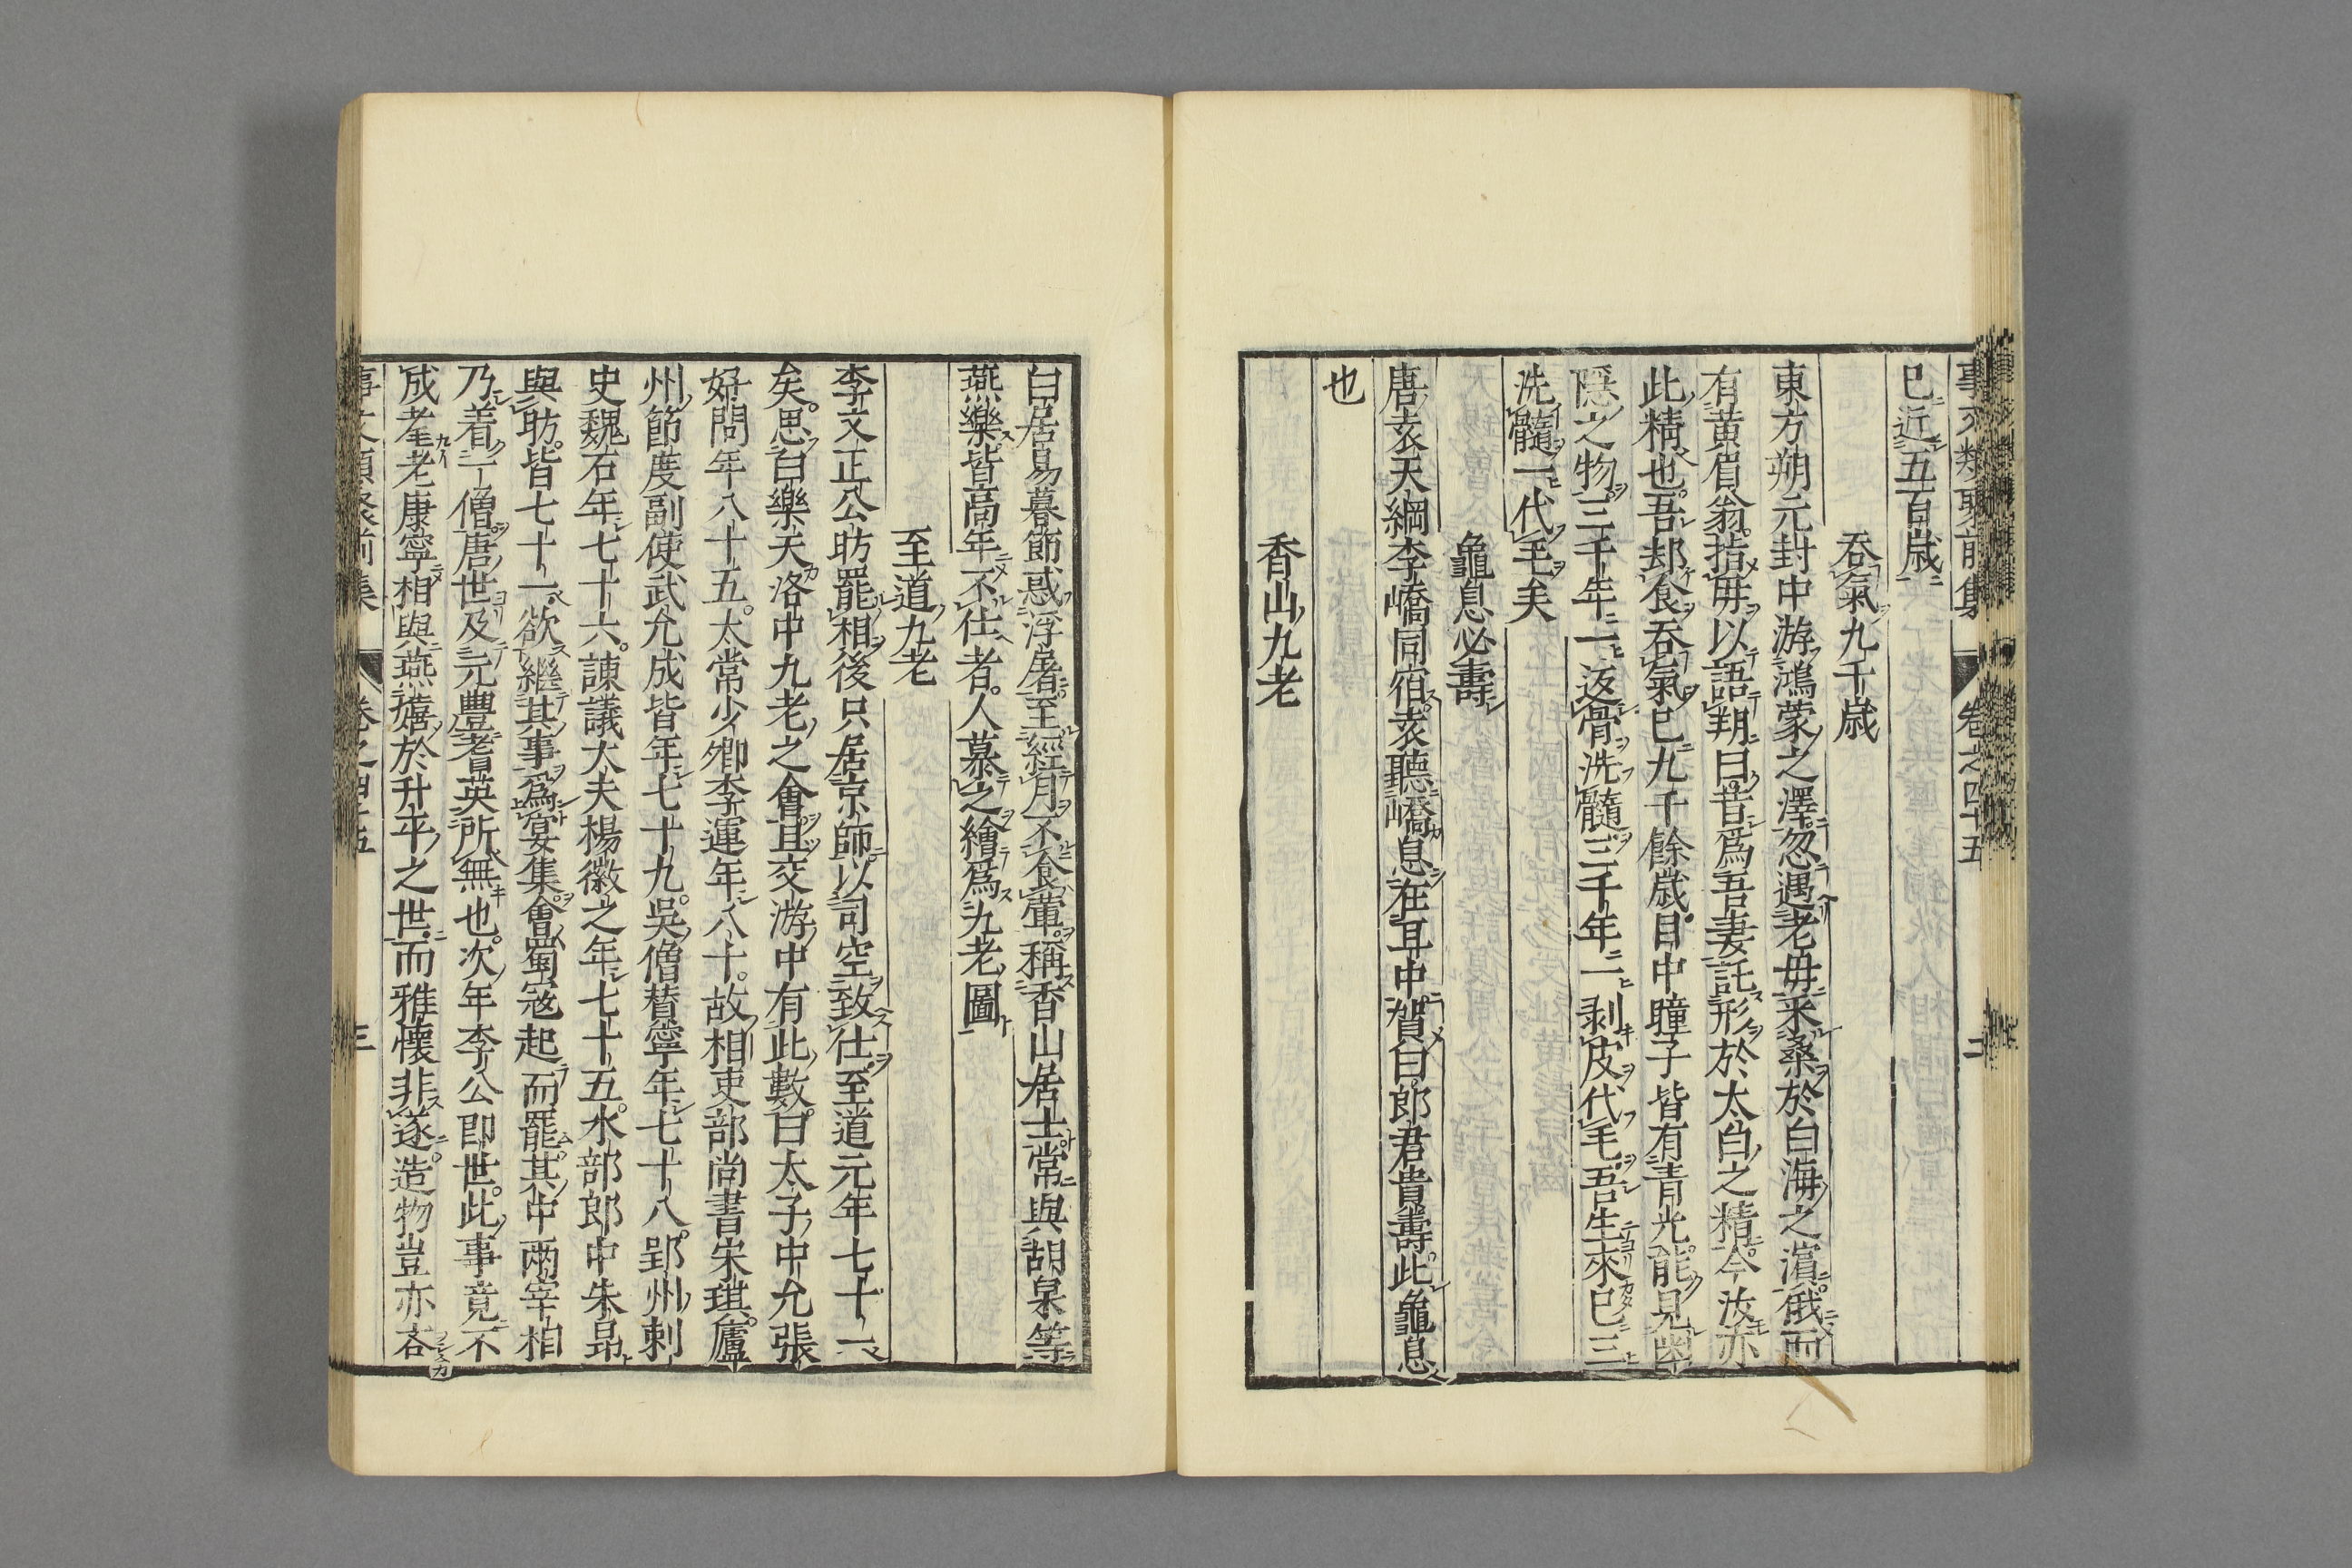 事文類聚前集 卷之四十五 二
已近五百歳
吞氣九千歳
東方朔元封中游鴻蒙之澤忽遇老毋采桑於白海之濵俄而
有黃眉翁指毋以語朔曰昔爲吾妻託形於太白之精今汝亦
此精也吾却食吞氣已九千餘歳目中瞳子皆有青光能見幽
隱之物三千年一返骨洗髓三千年一剥皮代毛吾生來已三
洗髓一代毛矣
龜息必壽
唐袁天綱李嶠同宿袁聽嶠息在耳中賀曰郎君貴壽此龜息
也
香山九老
白居易暮節惑浮屠至經月不食葷稱香山居士常與胡杲等
燕樂皆高年不仕者人慕之繪爲九老圖
至道九老
李文正公昉罷相後只居京師以司空致仕至道元年七十一
矣思白樂天洛中九老之會且交游中有此數曰太子中允張
好問年八十五太常少卿李運年八十故相吏部尚書宋琪廬
州節度副使武允成皆年七十九吳僧賛寧年七十八郢州刺
史魏石年七十六諫議太夫楊徽之年七十五水部郎中朱昻
與昉皆七十一欲繼其事爲宴集會蜀宼起而罷其中兩宰相
乃着一僧唐世及元豐耆英所無也次年李公即世此事竟不
成耊老康寧相與燕嬉於升平之世而雅懷非遂造物豈亦吝
事文類聚前集 卷之四十五 三